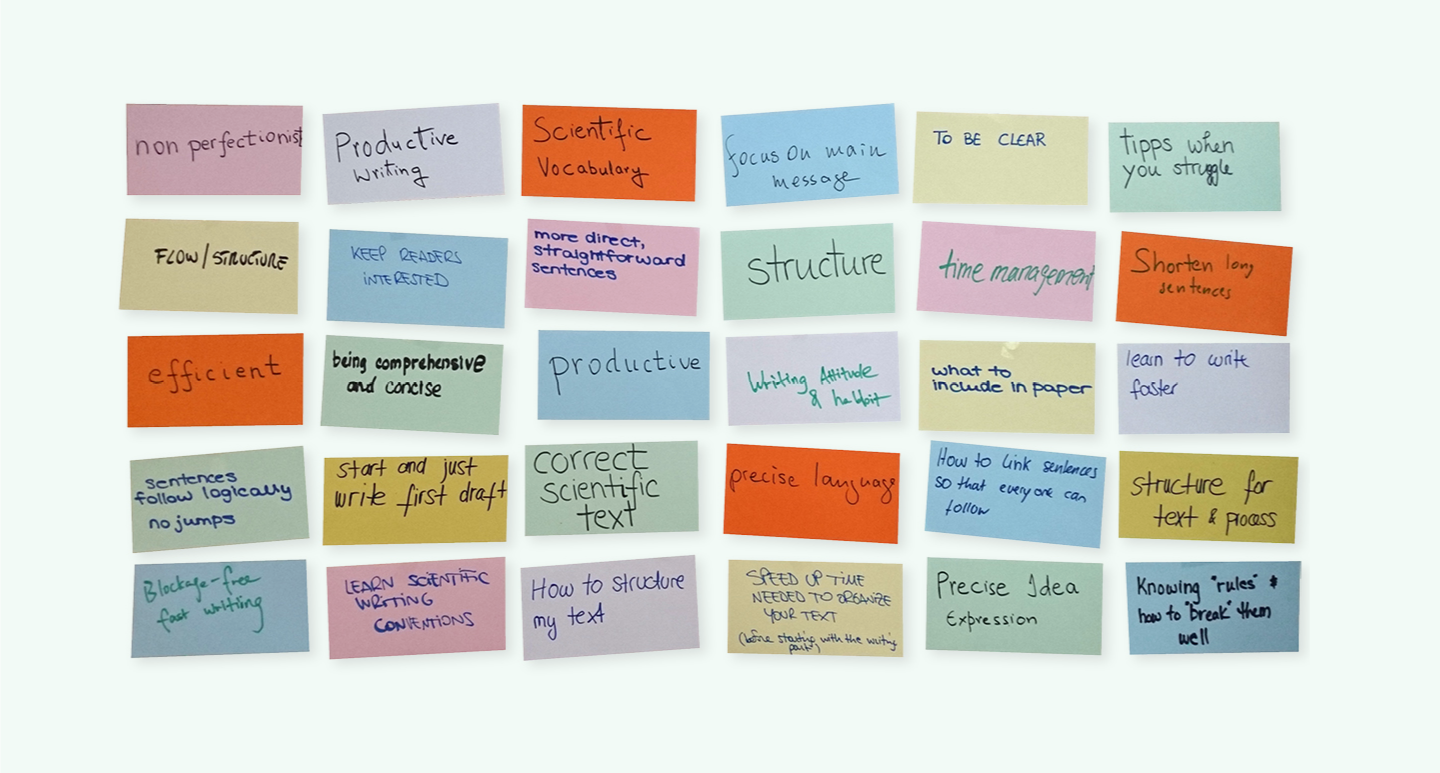 non perfectionist
Productive
Writing
Scientific
Vocabulary
focus on main
message
TO BE CLEAR
tipps when
you struggle
FLOW/STRUCTURE
KEEP READERS
INTERESTED
more direct,
straightforward
sentences
structure
time management
Shorten long
sentences
efficient
being comprehensive
and concise
productive
Writing Attitude
& habbit
what to
include in paper
learn to write
faster
sentences
follow logically
no jumps
start and just
write first draft
correct
scientific
text
precise language
How to link sentences
so that everyone can
follow
structure for
text & process
Blockage-free
fast writing
LEARN SCIENTIFIC
WRITING
CONVENTIONS
How to structure
my text
SPEED UP TIME
NEEDED TO ORGANIZE
YOUR TEXT
(before starting with the writing
part)
Precise Idea
Expression
Knowing "rules" &
how to "break" them
well